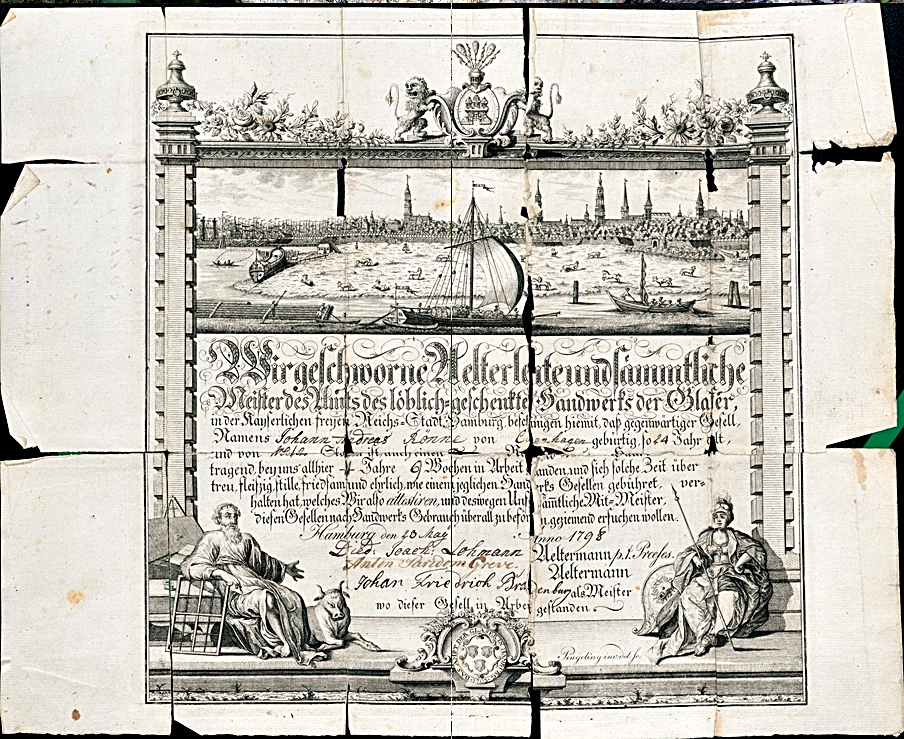 Wir geschworne Aelterleute und sämmtliche
Meister des Amts des löblich=geschenkten Handwerks der Glaser,
in der Kayserlichen freyen Reichs=Stadt Hamburg, bescheinigen hiemit, daß gegenwärtiger Gesell,
Namens Johann Andreas Rönne von Copenhagen gebürtig, so 24 Jahr alt,
und von Statur ist, auch einen Haar
tragend, bey uns allhier Jahre 9 Wochen in Arbeit gestanden, und sich solche Zeit über
treu, fleißig, stille, friedsam und ehrlich, wie einem jeglichen Handwerks Gesellen gebühret, ver=
halten hat, welches Wir also attestiren, und deswegen Unsere sämmtliche Mit=Meister,
diesen Gesellen nach Handwerks Gebrauch überall zu befördern, geziemend ersuchen wollen.
Hamburg den 23 May Anno 1798
Died. Joach. Lohmann Aeltermann p. t. Præses.
Anton Greve Aeltermann
Johan Friedrich Brandenburg als Meister
wo dieser Gesell in Arbeit gestanden.
Pingeling inv. del. sc.